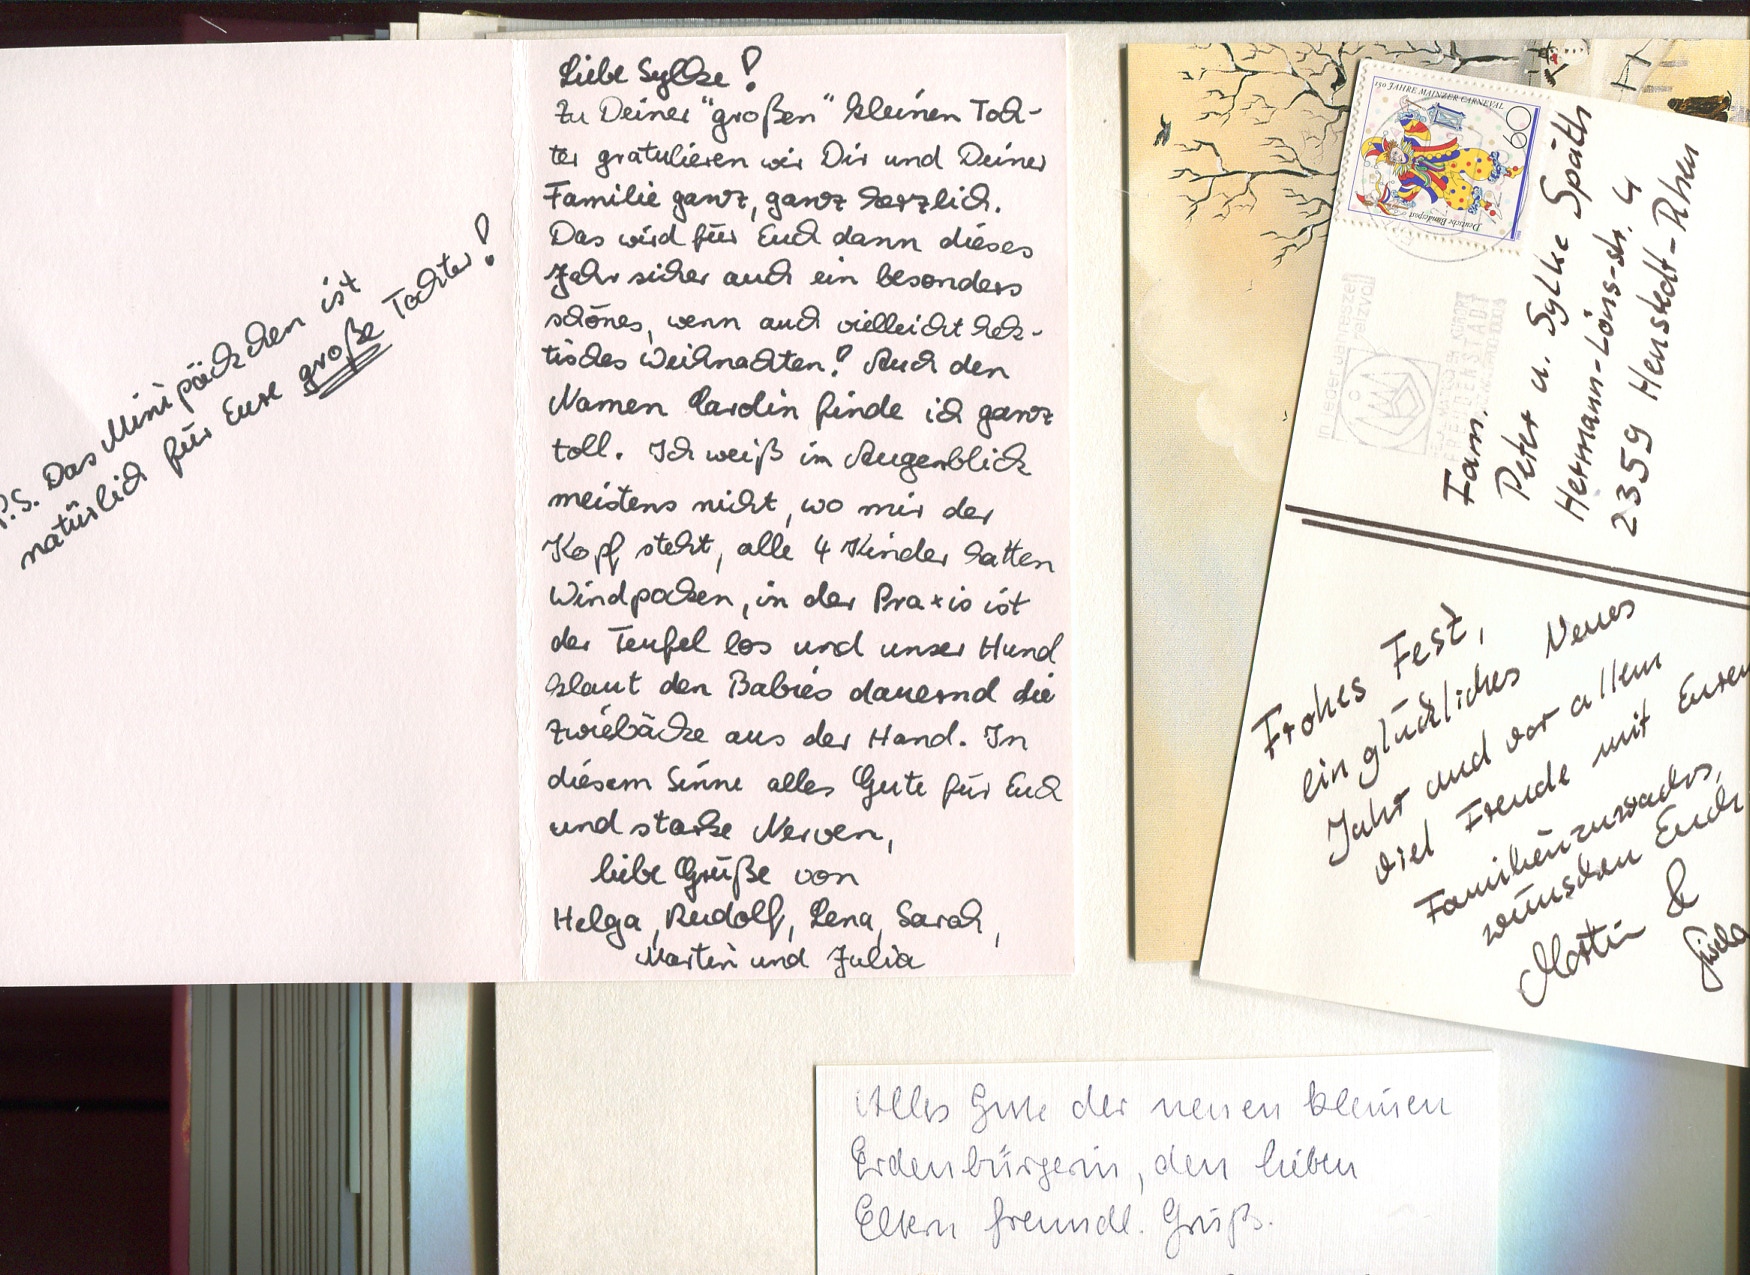 P.S. Das Minipäckchen ist
natürlich für Eure große Tochter!
Liebe Sylke!
Zu Deiner "großen" kleinen Toch-
ter gratulieren wir Dir und Deiner
Familie ganz, ganz herzlich.
Das wird für Euch dann dieses
Jahr sicher auch ein besonders
schönes, wenn auch vielleicht hek-
tisches Weihnachten! Auch den
Namen Carolin finde ich ganz
toll. Ich weiß im Augenblick
meistens nicht, wo mir der
Kopf steht, alle 4 Kinder hatten
Windpocken, in der Praxis ist
der Teufel los und unser Hund
klaut den Babies dauernd die
Zwiebäcke aus der Hand. In
diesem Sinne alles Gute für Euch
und starke Nerven,
liebe Grüße von
Helga, Rudolf, Lena, Sarah,
Martin und Julia
150 JAHRE MAINZER CARNEVAL
60
Deutsche Bundespost
In jeder Jahreszeit
reizvoll
FREUDENSTADT
Fam.
Peter u. Sylke Späth
Hermann-Löns-Str. 4
2359 Henstedt-Rhen
Frohes Fest,
ein glückliches Neues
Jahr und vor allem
viel Freude mit Eurem
Familienzuwachs,
wünschen Euch
Martin &
Gisela
Alles Gute der neuen kleinen
Erdenbürgerin, den lieben
Eltern freundl. Grüß.